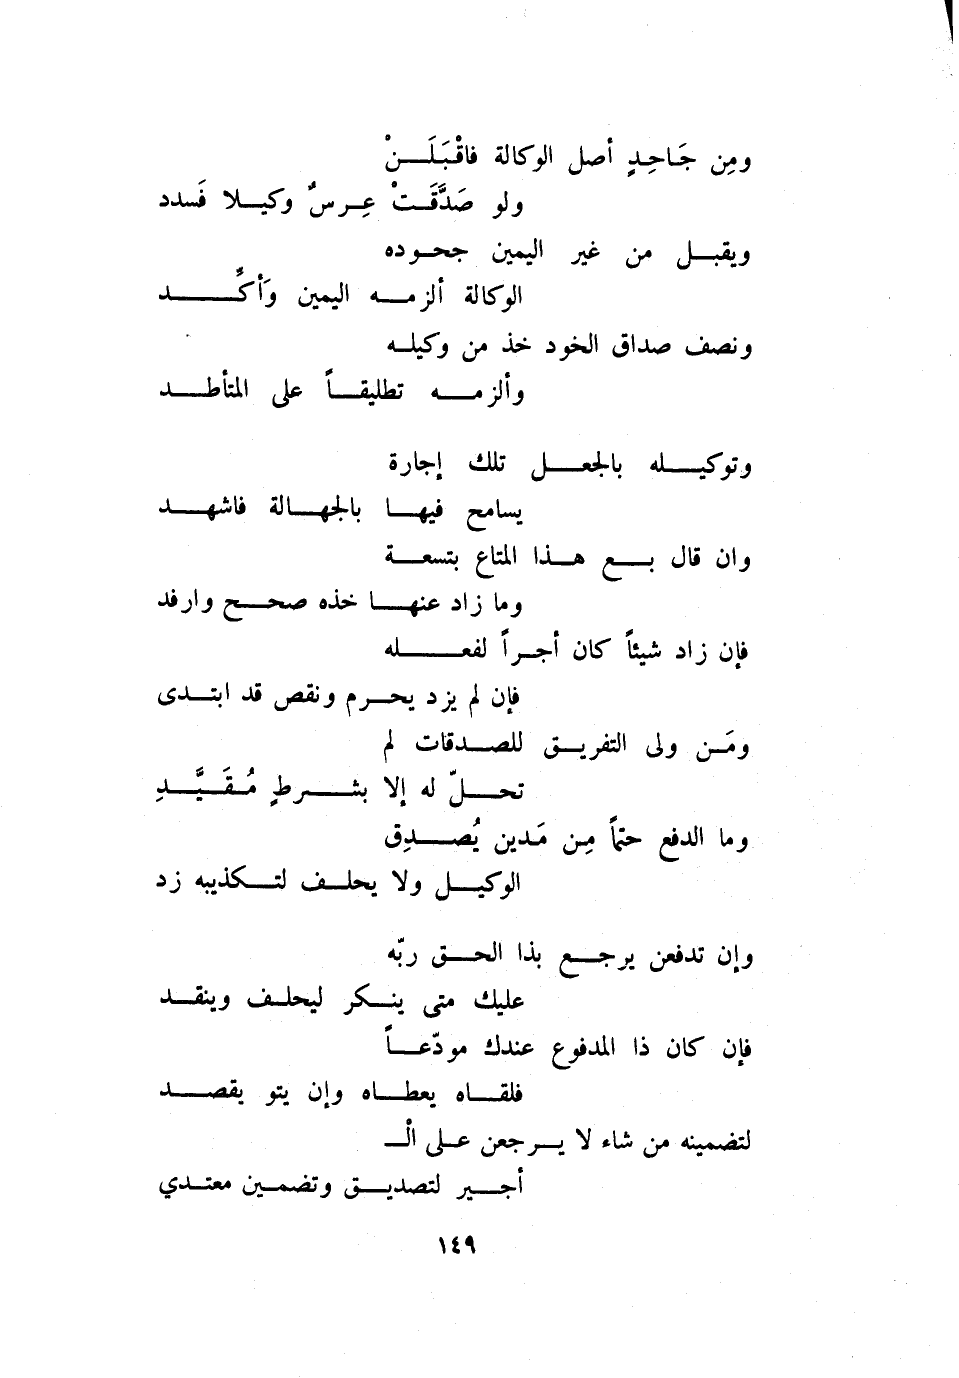 ومِن جَـاحِـدٍ أصل الوكالة فاقْـبَـلَـنْ
ولو صَدَّقَـتْ عِـرسٌ وكيـلا فَسدد
ويقبـل من غير اليمين جحـوده
الوكالة ألزمـه اليمين وَأكِّـد
ونصف صداق الخود خذ من وكيلـه
وألزمـه تطليقـاً على المتأطـد
وتوكيـله بالجعـل تلك إجارة
يسامح فيهـا بالجهـالة فاشهـد
وان قال بـع هـذا المتاع بتسعـة
وما زاد عنهـا خذه صحـح وارفد
فإن زاد شيئاً كان أجـراً لفعـله
فإن لم يزد يحـرم ونقص قد ابتـدى
ومَـن ولى التفريـق للصـدقات لم
تحـلّ له إلا بشـرطٍ مُـقَـيَّـدِ
وما الدفع حتماً مِـن مَـدين يُصـدِق
الوكيـل ولا يحلـف لتـكذيبه زد
وإن تدفعن يرجـع بذا الحـق ربّه
عليك متى ينـكر ليحلـف وينقـد
فإن كان ذا المدفوع عندك مودّعـاً
فلقـاه يعطـاه وإن يتو يقصـد
لتضمينه من شاء لا يـرجعن عـلى الْـ
أجـير لتصديـق وتضمـين معتـدي
١٤٩